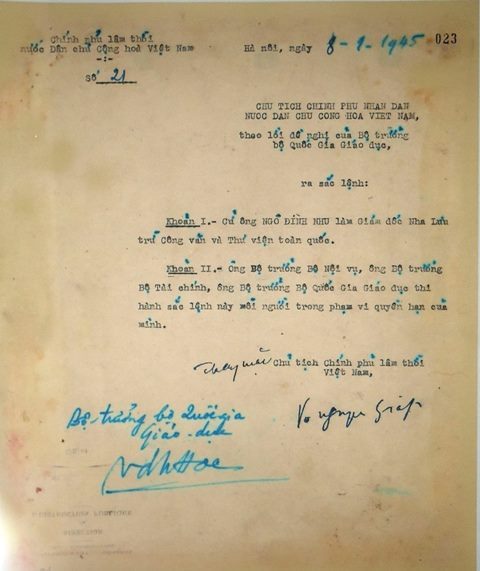 Chính phủ lâm thời
nước Dân chủ Cộng hoà Việt Nam
-:-
Số 21
Hà nôi, ngày 8-9-1945
023
CHỦ TỊCH CHINH PHU NHAN DAN
NUOC DAN CHU CONG HOA VIET NAM,
theo lời đề nghị của Bộ trưởng
bộ Quốc Gia Giáo dục,
ra sắc lệnh:
Khoản I.- Cử ông NGÔ ĐÌNH NHU làm Giám đốc Nha Lưu
trữ Công văn và Thư viện toàn quốc.
Khoản II.- Ông Bộ trưởng Bộ Nội vụ, ông Bộ trưởng
Bộ Tài chính, ông Bộ trưởng Bộ Quốc Gia Giáo dục thi
hành sắc lệnh này mỗi người trong phạm vi quyền hạn của
mình.
Thay mặt Chủ tịch Chính phủ lâm thời
Việt Nam,
Bộ trưởng bộ Quốc gia
Giáo-dục
Võ nguyên Giáp
VdhHoe